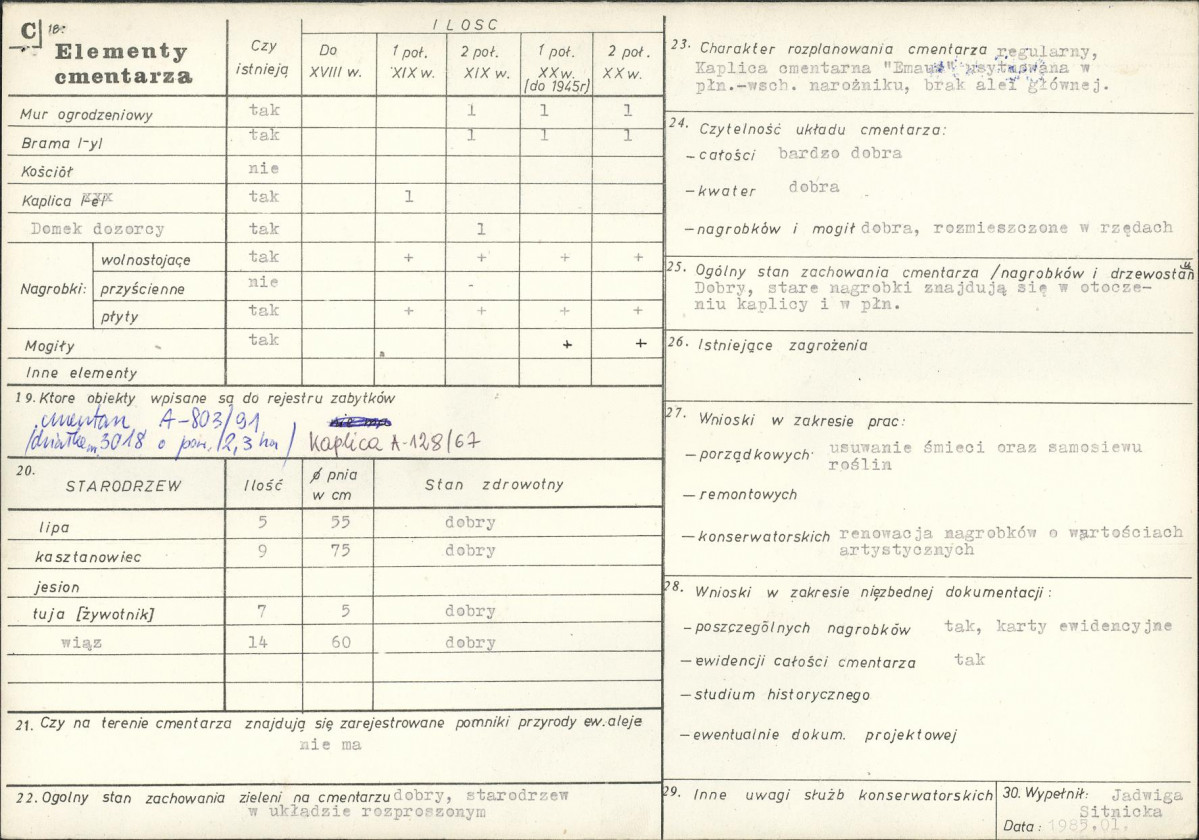 C 18.
Elementy cmentarza
Czy istnieją
ILOSC
Do XVIII w.
1 poł. XIX w.
2 poł. XIX w.
1 poł. XX w. (do 1945r)
2 poł. XX w.
Mur ogrodzeniowy tak 1 1 1
Brama /-y/ tak 1 1 1
Kościół nie
Kaplica tak 1
Domek dozorcy tak 1
Nagrobki:
wolnostojące tak + + + +
przyścienne nie -
płyty tak + + + +
Mogiły tak + +
Inne elementy
19. Ktore obiekty wpisane są do rejestru zabytków
cmentarz A-803/91
/działka 3018 o pow. 2,3 ha/ Kaplica A-128/67
20.
STARODRZEW Ilość ø pnia w cm Stan zdrowotny
lipa 5 55 dobry
kasztanowiec 9 75 dobry
jesion
tuja [żywotnik] 7 5 dobry
wiąz 14 60 dobry
21. Czy na terenie cmentarza znajdują się zarejestrowane pomniki przyrody ew. aleje
nie ma
22. Ogolny stan zachowania zieleni na cmentarzu dobry, starodrzew
w układzie rozproszonym
23. Charakter rozplanowania cmentarza regularny,
Kaplica cmentarna "Emaus" usytuowana w
płn.-wsch. narożniku, brak alei głównej.
24. Czytelność układu cmentarza:
- całości bardzo dobra
- kwater dobra
- nagrobków i mogił dobra, rozmieszczone w rzędach
25. Ogólny stan zachowania cmentarza /nagrobków i drzewostanu
Dobry, stare nagrobki znajdują się w otocze-
niu kaplicy i w płn.
26. Istniejące zagrożenia
27. Wnioski w zakresie prac:
- porządkowych usuwanie śmieci oraz samosiewu
roślin
- remontowych
- konserwatorskich renowacja nagrobków o wartościach
artystycznych
28. Wnioski w zakresie nięzbednej dokumentacji:
- poszczególnych nagrobków tak, karty ewidencyjne
- ewidencji całości cmentarza tak
- studium historycznego
- ewentualnie dokum. projektowej
29. Inne uwagi służb konserwatorskich
30. Wypełnił: Jadwiga
Sitnicka
Data: 1985.01.